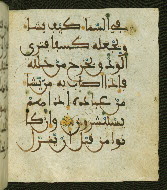 في السما كيف يشا
ويجعله كسفا فترى
الودق يخرج من خلله
فإذا أصاب به من يشا
من عباده إذا هم
يستبشرون وإن كا
نوا من قبل أن ينزل